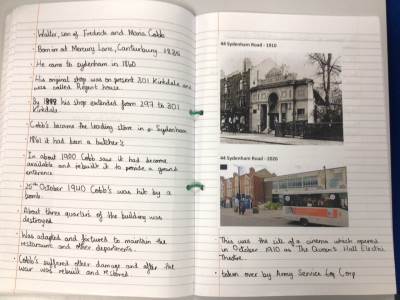 · Walter, son of Fredrick and Maria Cobb
· Born in at Mercury Lane, Canterbury. 1835
· He came to sydenham in 1860
· His original shop was on present 301 Kirkdale and
was called Regent house.
· By his shop extended from 297 to 301
Kirkdale
· Cobb's became the leading store in Sydenham
1861 it had been a butcher's
· In about 1900 Cobb saw it had become
available and rebuilt it to provide a grand
enterence
· 25th October 1940 Cobb's was hit by a
bomb.
· About three quarters of the building was
destroyed
· Was adapted and factured to maintain the
restaurant and other departments.
· Cobb's suffered other damage and after the
war was rebuilt and restored
44 Sydenham Road - 1910
44 Sydenham Road - 2020
This was the site of a cinema which opened
in October 1910 as The Queen's Hall Electric
Theatre
· taken over by Army Service Corp